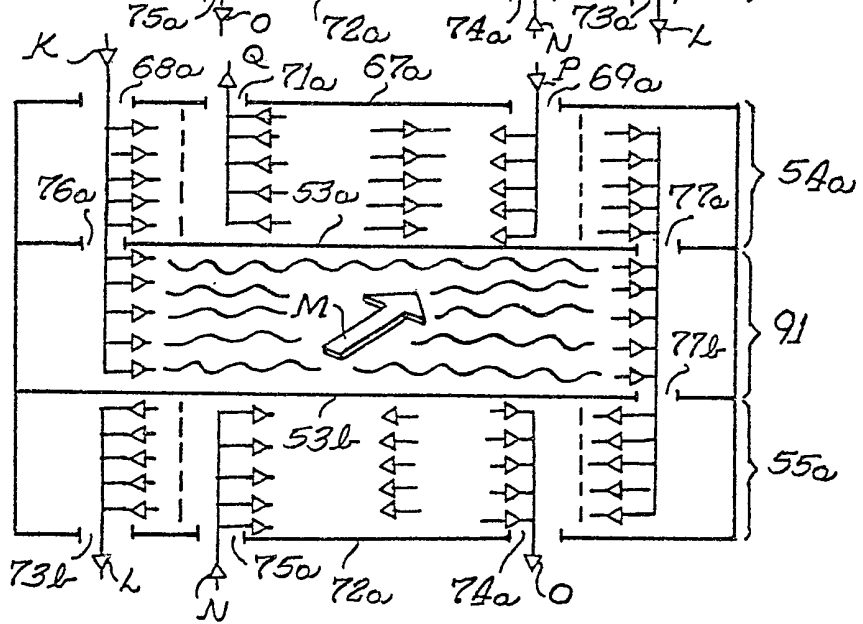 75a O 72a 74a N 73a L
K 68a Q 71a 67a P 69a
54a
76a 53a 77a
M 91
77b
53b
55a
73b L N 75a 72a 74a O